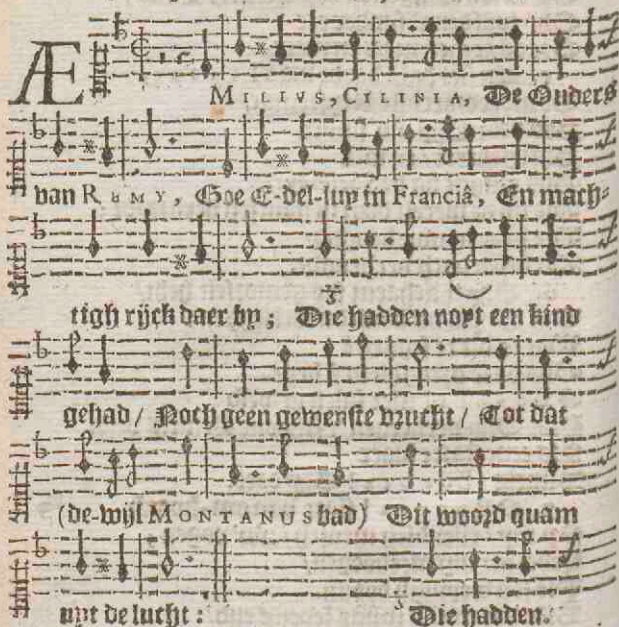 ÆMILIVS, CILINIA, De Ouders
van REMY, Goe E-del-luy in Franciâ, En mach-
tigh rijck daer by; Die hadden noyt een kind
gehad / Noch geen gewenste vrucht / Tot dat
(de-wijl MONTANUS bad) Dit woord quam
uyt de lucht: Die hadden.